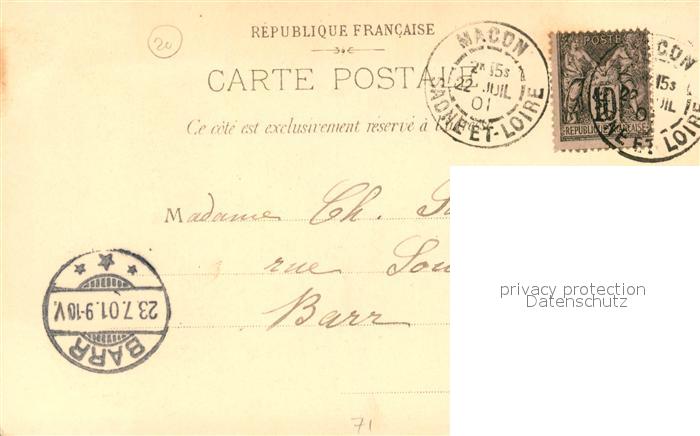 20
RÉPUBLIQUE FRANÇAISE
CARTE POSTALE
Ce côté est exclusivement réservé à
MACON
2ᴱ 15s
22 JUIL
01
SAONE-ET-LOIRE
POSTES
10
RÉPUBLIQUE FRANÇAISE
MACON
15s
JUIL
ET-LOIRE
Madame Ch.
rue
Barr
23.7.01.9-10V.
BARR
privacy protection
Datenschutz
71